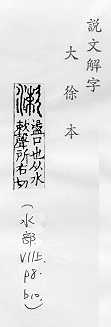 説文解字
大徐本
漱
盪口也从水
欶聲所右切
(水部
VII上.
p8.
b10.)